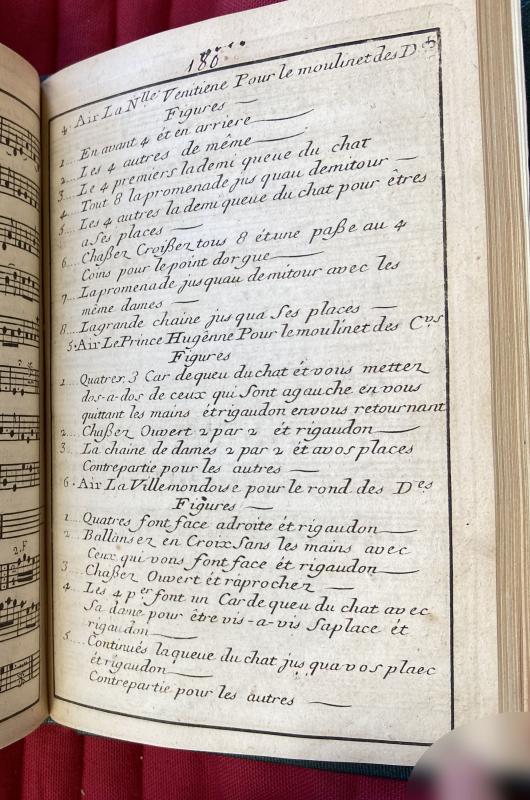 180
4. Air La Nlle Venitiene Pour le moulinet des Des
Figures
1... En avant 4 ét en arriere
2... Les 4 autres de même
3... Le 4 premiers la demi queue du chat
4... Tout 8 la promenade jus quau demitour
5... Les 4 autres la demi queue du chat pour êtres
a ses places
6... Chaßez Croißez tous 8 ét une paße au 4
Coins pour le point dorgue
7... La promenade jusquau demitour avec les
même dames
8... La grande chaine jus qua Ses places
5. Air Le Prince Hugênne Pour le moulinet des Cvs
Figures
1... Quatrer 3 Car de queu du chat ét vous mettez
dos-a-dos de ceux qui Sont agauche en vous
quittant les mains ét rigaudon en vous retournant
2... Chaßez Ouvert 2 par 2 ét rigaudon
3... La chaine de dames 2 par 2 ét a vos places
Contrepartie pour les autres
6. Air La Villemondoise pour le rond des Des
Figures
1... Quatres font face adroite ét rigaudon
2... Ballansez en Croix Sans les mains avec
Ceux qui vous font face ét rigaudon
3... Chaßez Ouvert ét râprochez
4... Les 4 per font un Car de queu du chat avec
Sa dame pour être vis-a-vis Sa place ét
rigaudon
5... Continués la queue du chat jus qua vos plaec
ét rigaudon
Contrepartie pour les autres
2.F